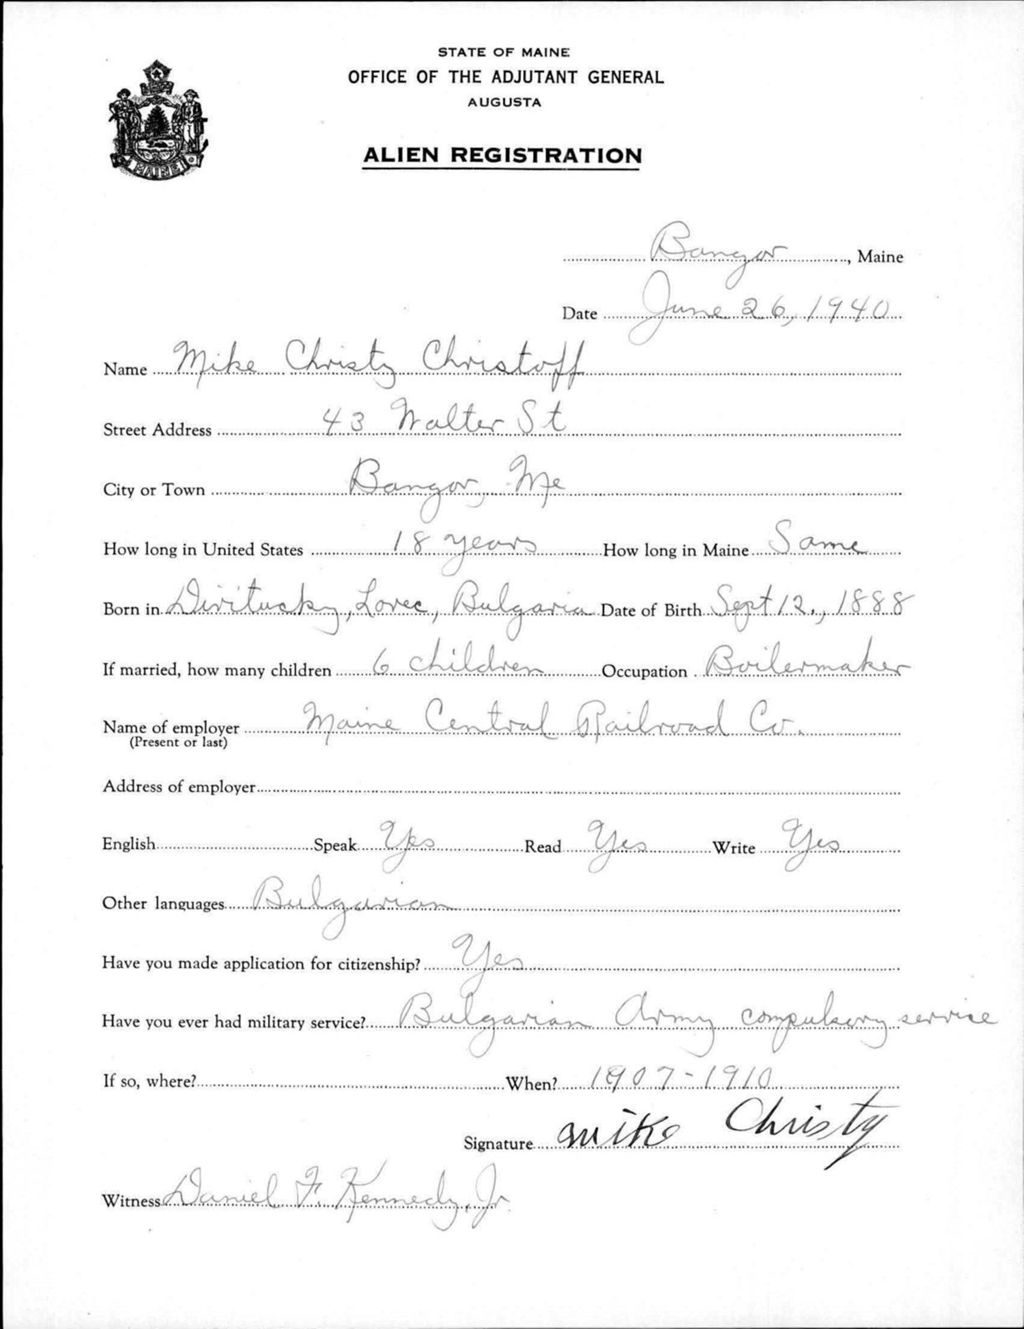 STATE OF MAINE
OFFICE OF THE ADJUTANT GENERAL
AUGUSTA
ALIEN REGISTRATION
Bangor, Maine
Date June 26, 1940
Name Mike Christy Christoff
Street Address 43 Walter St
City or Town Bangor, Me
How long in United States 18 years How long in Maine Same
Born in Divitucky, Lovec, Bulgaria Date of Birth Sept 12., 1888
If married, how many children 6 children Occupation Boilermaker
Name of employer Maine Central Railroad Co.
(Present or last)
Address of employer
English Speak Yes Read Yes Write Yes
Other languages Bulgarian
Have you made application for citizenship? Yes
Have you ever had military service? Bulgarian Army compulsory service
If so, where? When? 1907-1910
Signature Mike Christy
Witness Daniel F. Kennedy, Jr
MAINE